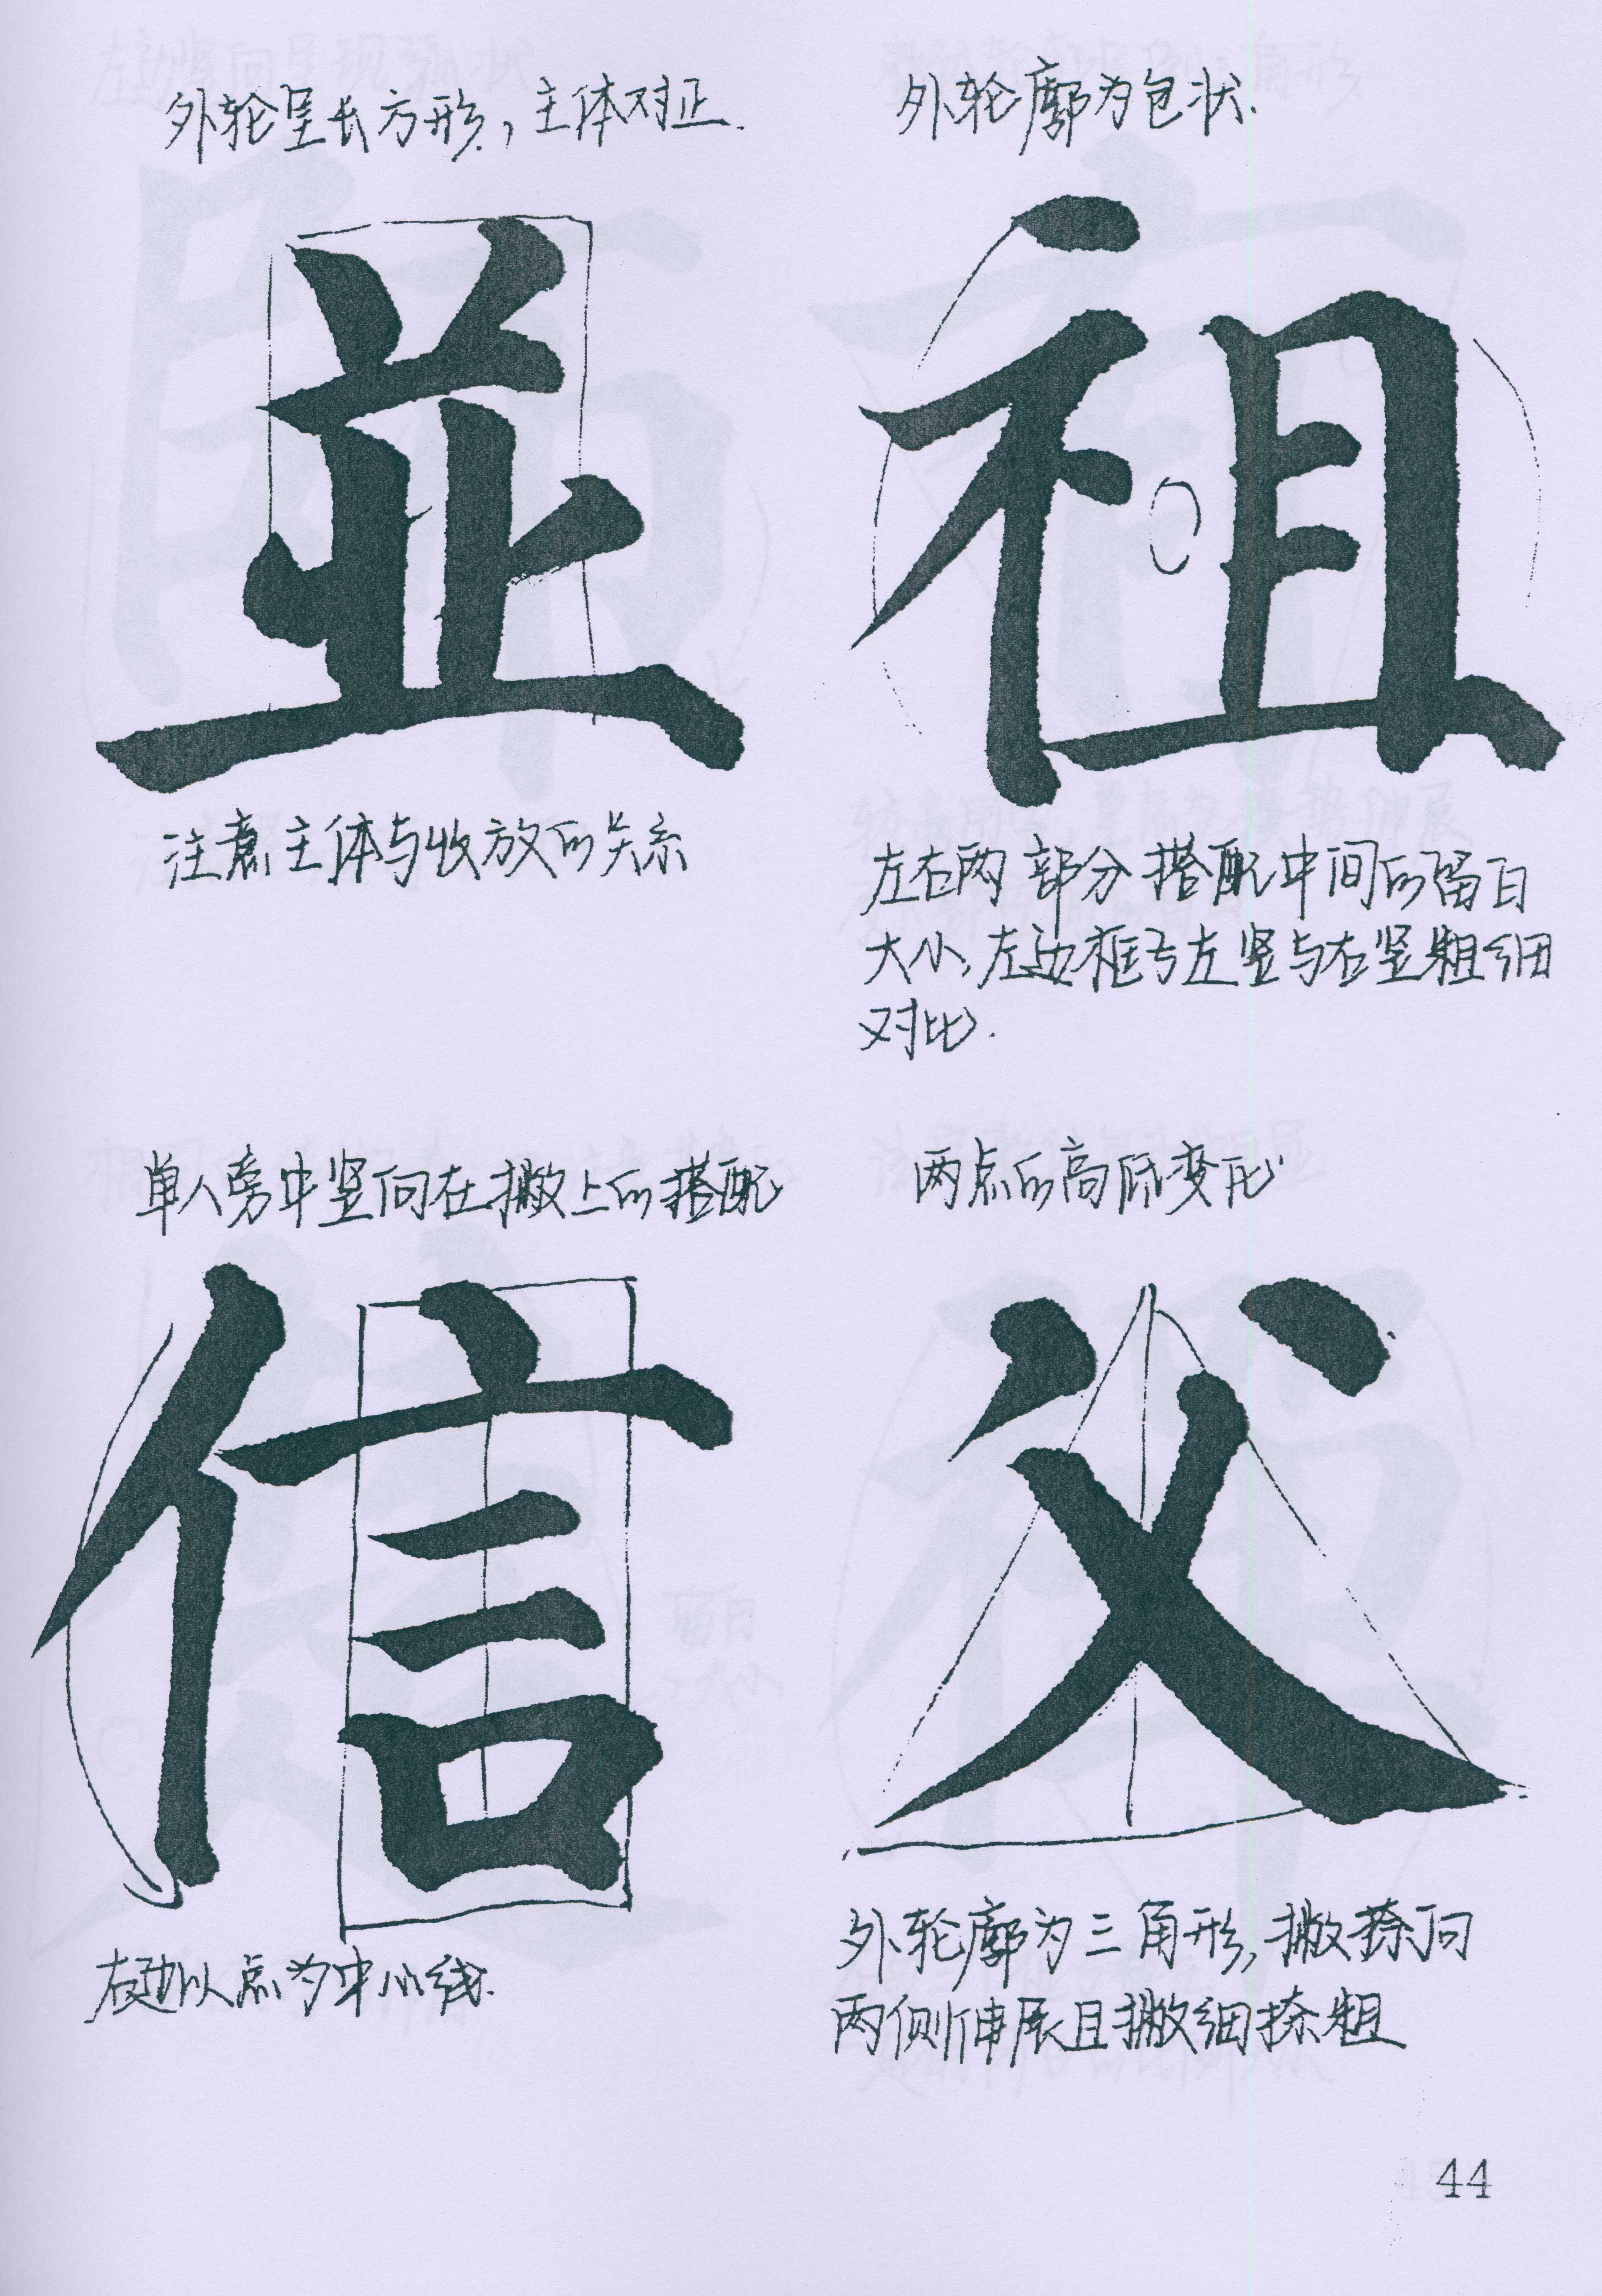 外轮呈长方形,主体对正.
外轮廓为包状.
並
祖
注意主体与收放的关系
左右两部分搭配中间的留白
大小,左边框与左竖与右竖粗细
对比.
单人旁中竖向在撇上的搭配
两点的高低变化
信
父
右边以点为中心线.
外轮廓为三角形,撇捺向
两侧伸展且撇细捺粗
44